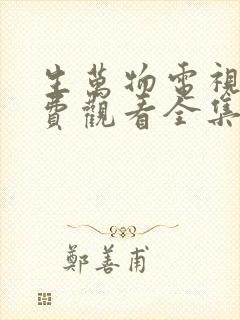 生萬物電視
費觀看全集
鄭善甫